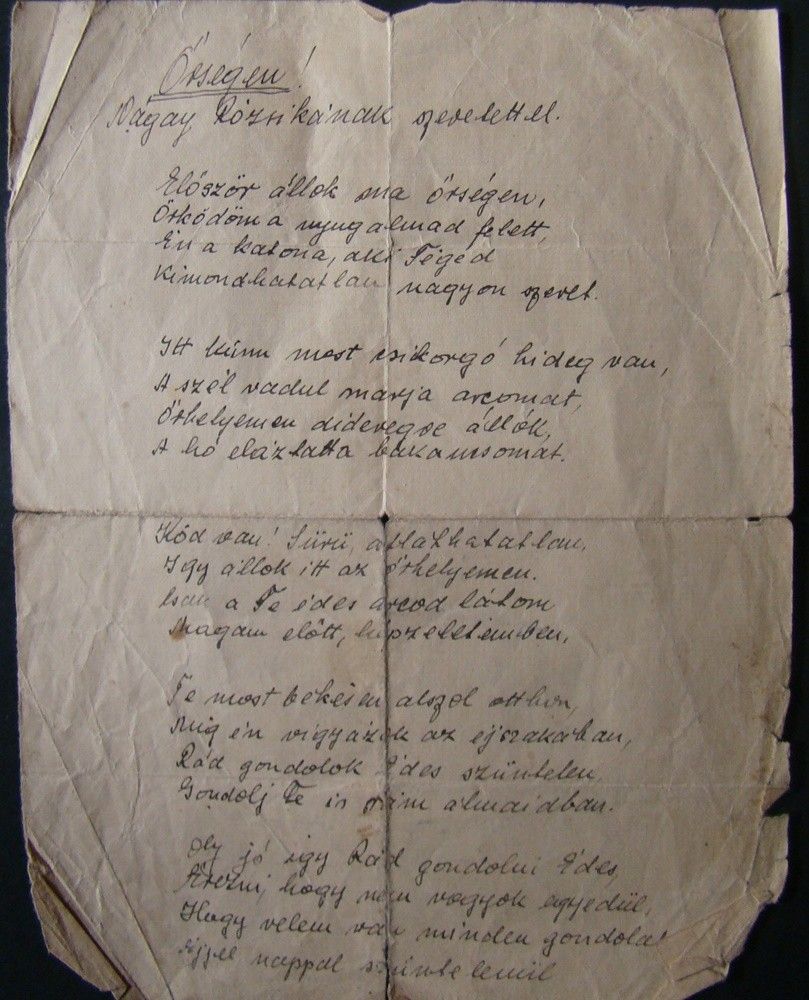 Őrségen!
Nagay Rózsikának szeretettel.
Először állok ma őrségen,
Őrködöm a nyugalmad felett,
Én a katona, aki Téged
Kimondhatatlan nagyon szeret.
Itt künn most csikorgó hideg van,
A szél vadul marja arcomat,
Őrhelyemen dideregve állók,
A hó eláztatta bakancsomat.
Köd van! Sürü, átláthatatlan,
Igy állok itt az őrhelyemen.
Csak a Te édes arcod látom
Magam előtt, képzeletemben,
Te most békésen alszol otthon,
Mig én vigyázok az éjszakában,
Rád gondolok Édes szüntelen,
Gondolj Te is rám álmaidban.
Oly jó igy Rád gondolni Édes,
Érezni, hogy nem vagyok egyedül,
Hogy velem van minden gondola
Éjjel nappal szüntelenül